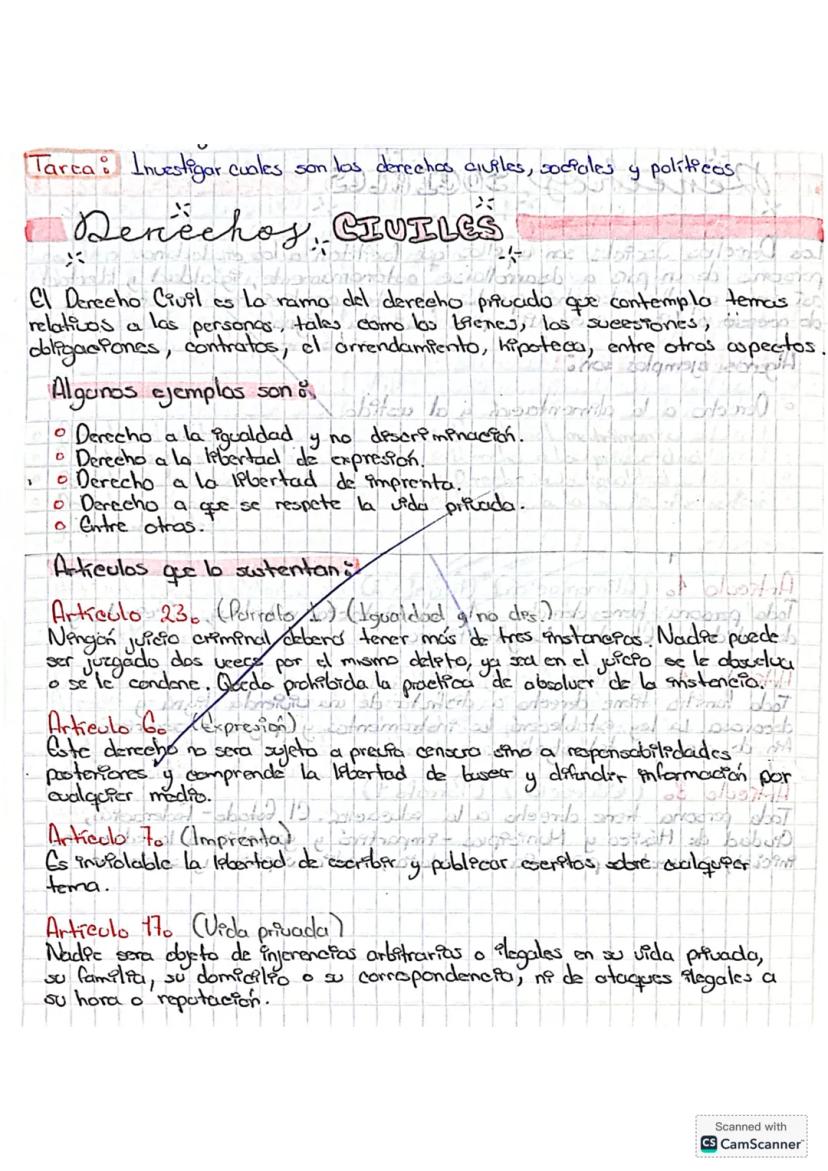 Tarea: Investigar cuales son los derechos civiles, sociales y políticos
Derechos CIVILES
El Derecho Civil es la rama del derecho privado que contempla temas
relativos a las personas, tales como los bienes, las sucesiones,
obligaciones, contratos, el arrendamiento, hipoteca, entre otros aspectos.
Algunos ejemplos son:
Derecho a la igualdad y no discriminación.
Derecho a la libertad de expresión.
Derecho a la libertad de imprenta.
Derecho a que se respete la vida privada.
Entre otras.
Artículos que lo sustentan:
Artículo 23. (Párrafo 1) (Igualdad y no des.)
Ningún juicio criminal deberá tener más de tres instancias. Nadie puede
ser juzgado dos veces por el mismo delito, ya sea en el juicio se le absuelva
o se le condene. Queda prohibida la practica de absolver de la instancia.
Artículo 6. (Expresión)
Este derecho no sera sujeto a previa censura sino a responsabilidades
posteriores y comprende la libertad de buscar y difundir información por
cualquier medio.
Artículo 7. (Imprenta)
Es inviolable la libertad de escribir y publicar escritos sobre cualquier
tema.
Artículo 17. (Vida privada)
Nadie sera objeto de injerencias arbitrarias o ilegales en su vida privada,
su familia, su domicilio o su correspondencia, ni de ataques ilegales a
su hora o reputación.
Scanned with
CS CamScanner